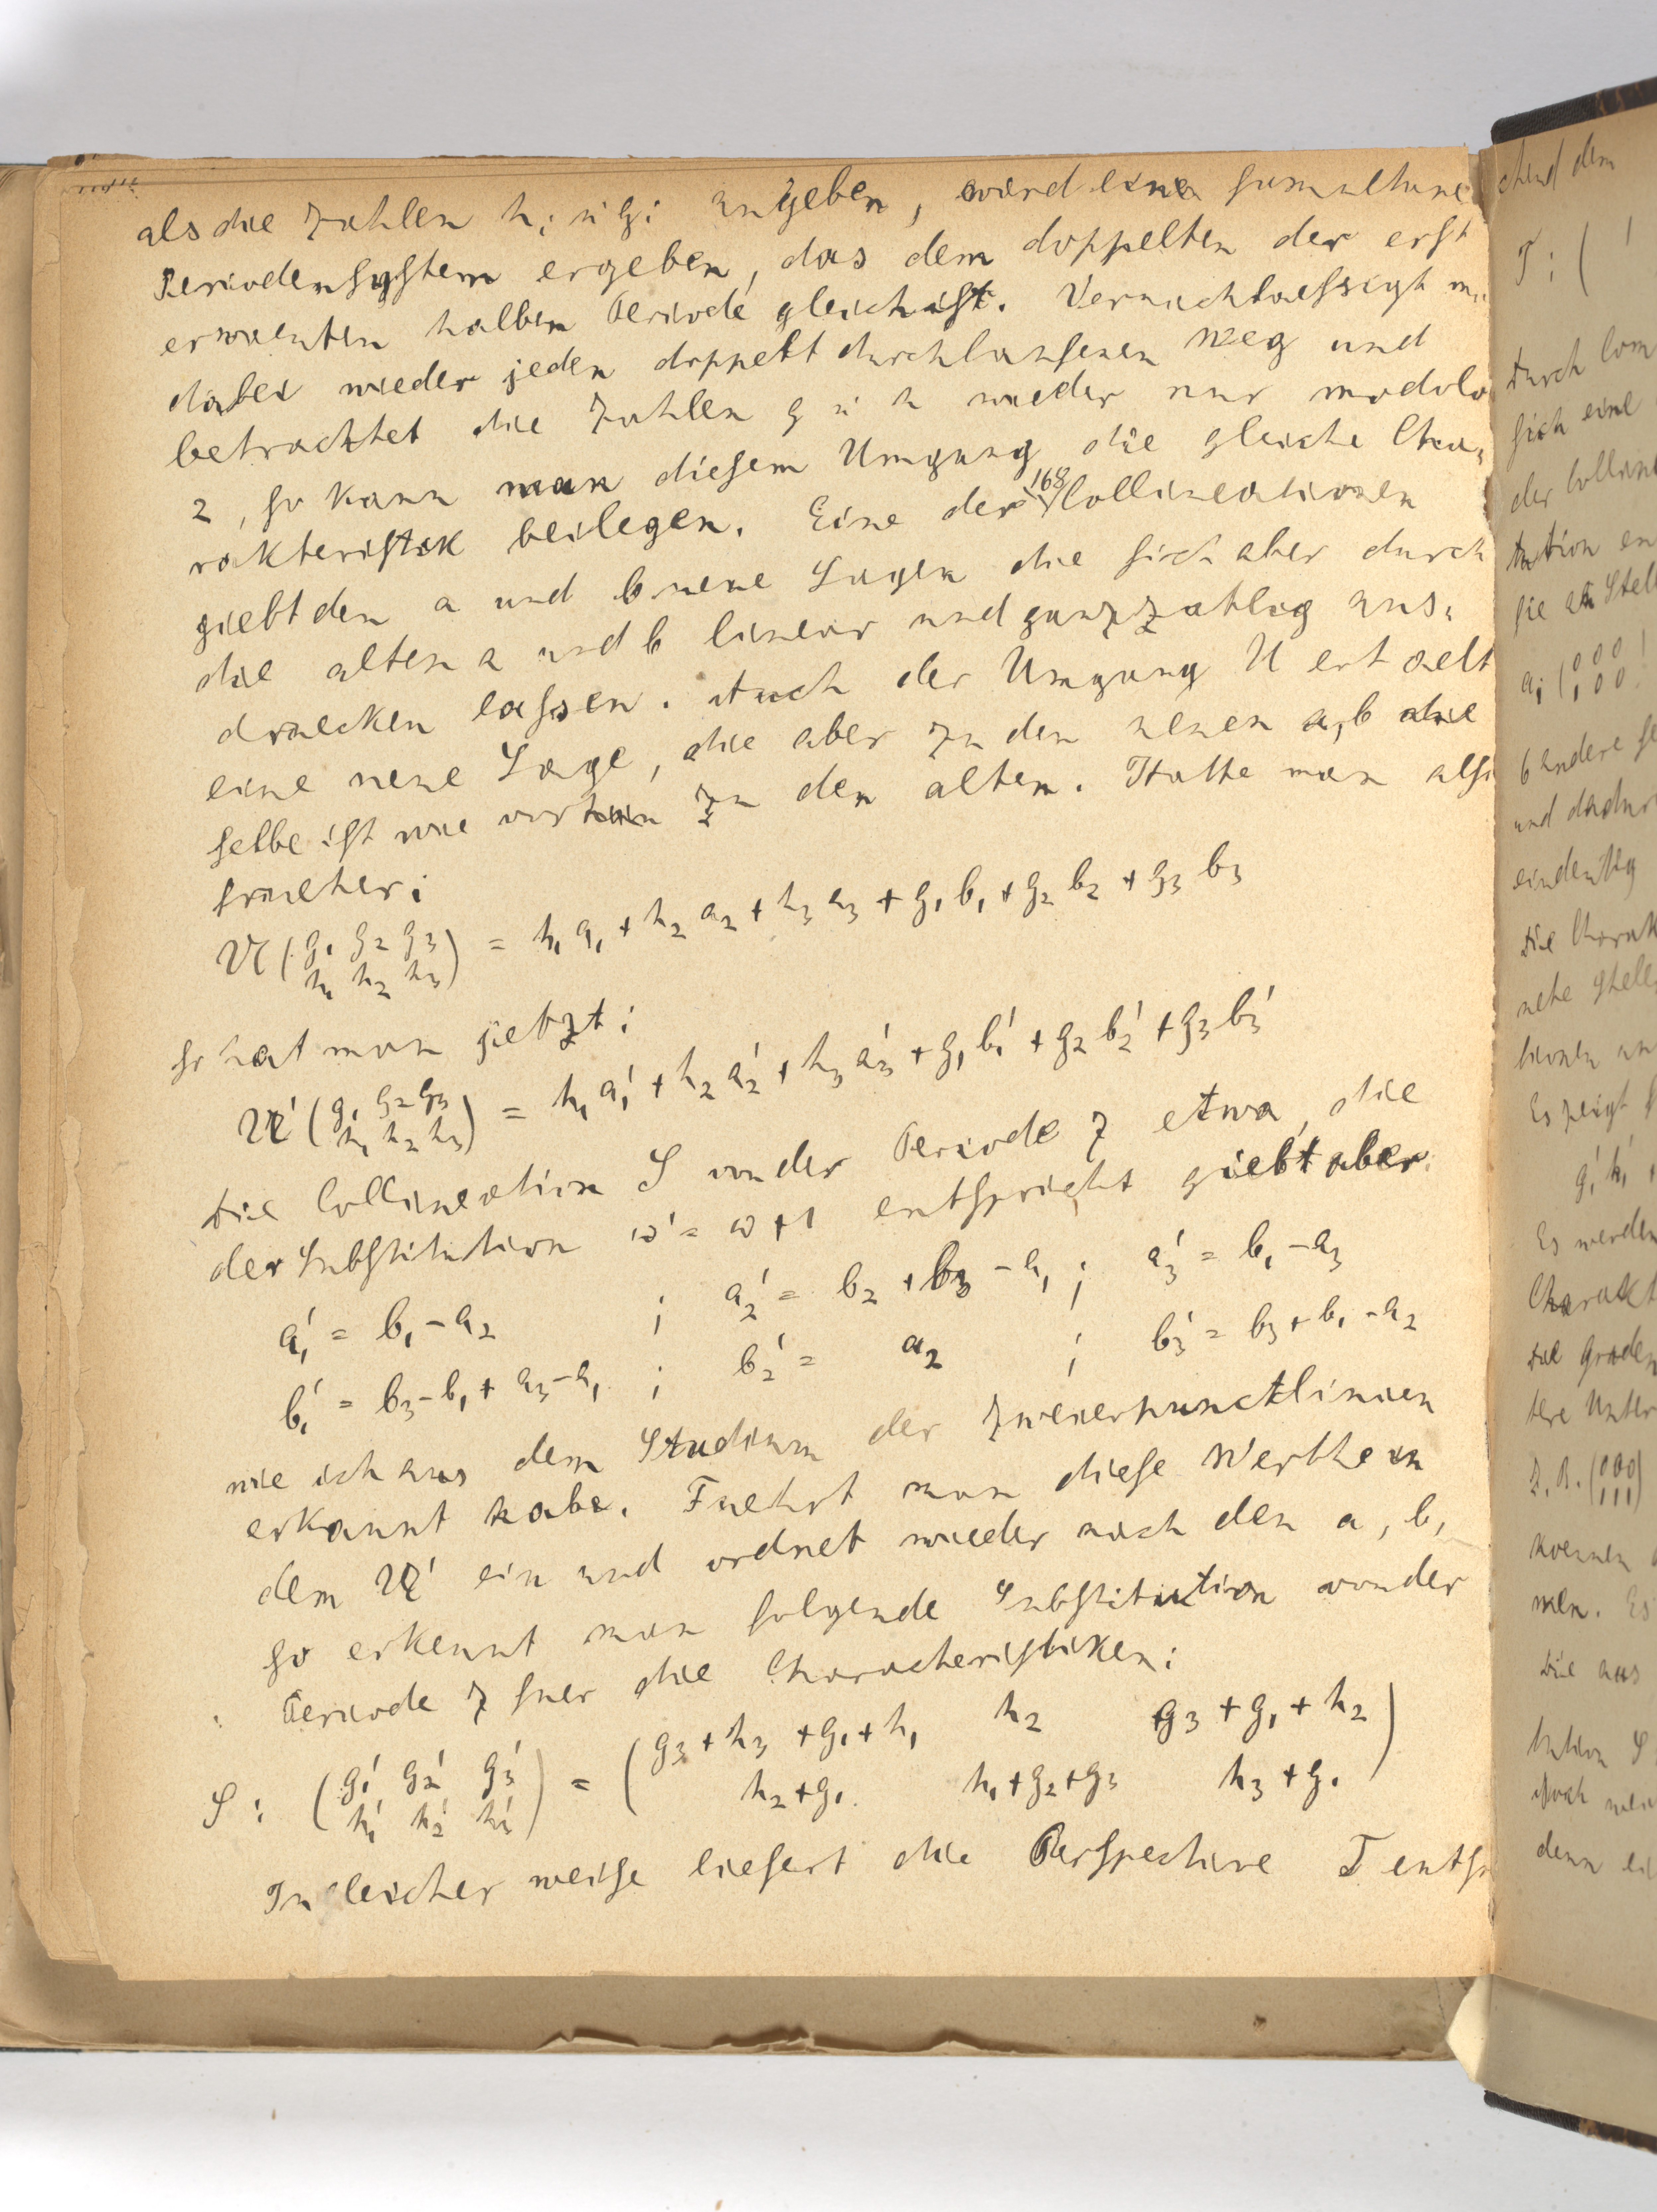 als die Zahlen hi u gi angeben, wird eine simultane
Periodensystem ergeben, das dem doppelten der erst
erwaenten halben Periode gleich ist. Vernachlaessigt m
dabei wieder jeden doppelt durchlaufenen Weg und
betrachtet die Zahlen g u h wieder nur modulo
2, so kann man diesem Umgang die gleiche Cha-
rakteristik beilegen. Eine der 168 Collineationen
giebt den a und b neue Lagen die sich aber durch
die alten a und b linear und ganzzahlig aus-
druecken lassen. Auch der Umgang U erhaelt
eine neue Lage, die aber zu den neuen a, b die
selbe ist wie vorhin zu den alten. Hatte man also
frueher:
U(g1 g2 g3 = h1 a1 + h2 a2 + h3 a3 + g1 b1 + g2 b2 + g3 b3
h1 h2 h3)
so hat man jetzt:
U'(g1 g2 g3 = h1 a1' + h2 a2' + h3 a3' + g1 b1' + g2 b2' + g3 b3'
h1 h2 h3)
Die Collineation S von der Periode 7 etwa, die
der Substitution ω' = ω + 1 entspricht giebt aber:
a1' = b1 - a2 ; a2' = b2 + b3 - a1 ; a3' = b1 - a3
b1' = b3 - b1 + a3 - a1 ; b2' = a2 ; b3' = b3 + b1 - a2
wie ich aus dem Studium der Zweierpunctlinien
erkannt habe. Fuehrt man diese Werthe in
dem U' ein und ordnet wieder nach den a, b,
so erkennt man folgende Substitution von der
Periode 7 fuer die Characteristiken:
S: (g1' g2' g3' = (g3 + h3 + g1 + h1 h2 g3 + g1 + h2)
h1' h2' h3') h2 + g1 h1 + g2 + g3 h3 + g1
In gleicher weise liefert die Perspective T entsp
chend dem
T: (1
Durch Com
sich eine
der Collin
tution en
sie an Stell
und dadur
eindeutig
Die Charak
Es zeigt s
g1' h1'
Es werden
Charakt
Die Graden
tere Unter
z.B. (000
111)
koennen
men. Es
Die aus
tution S
denn ei